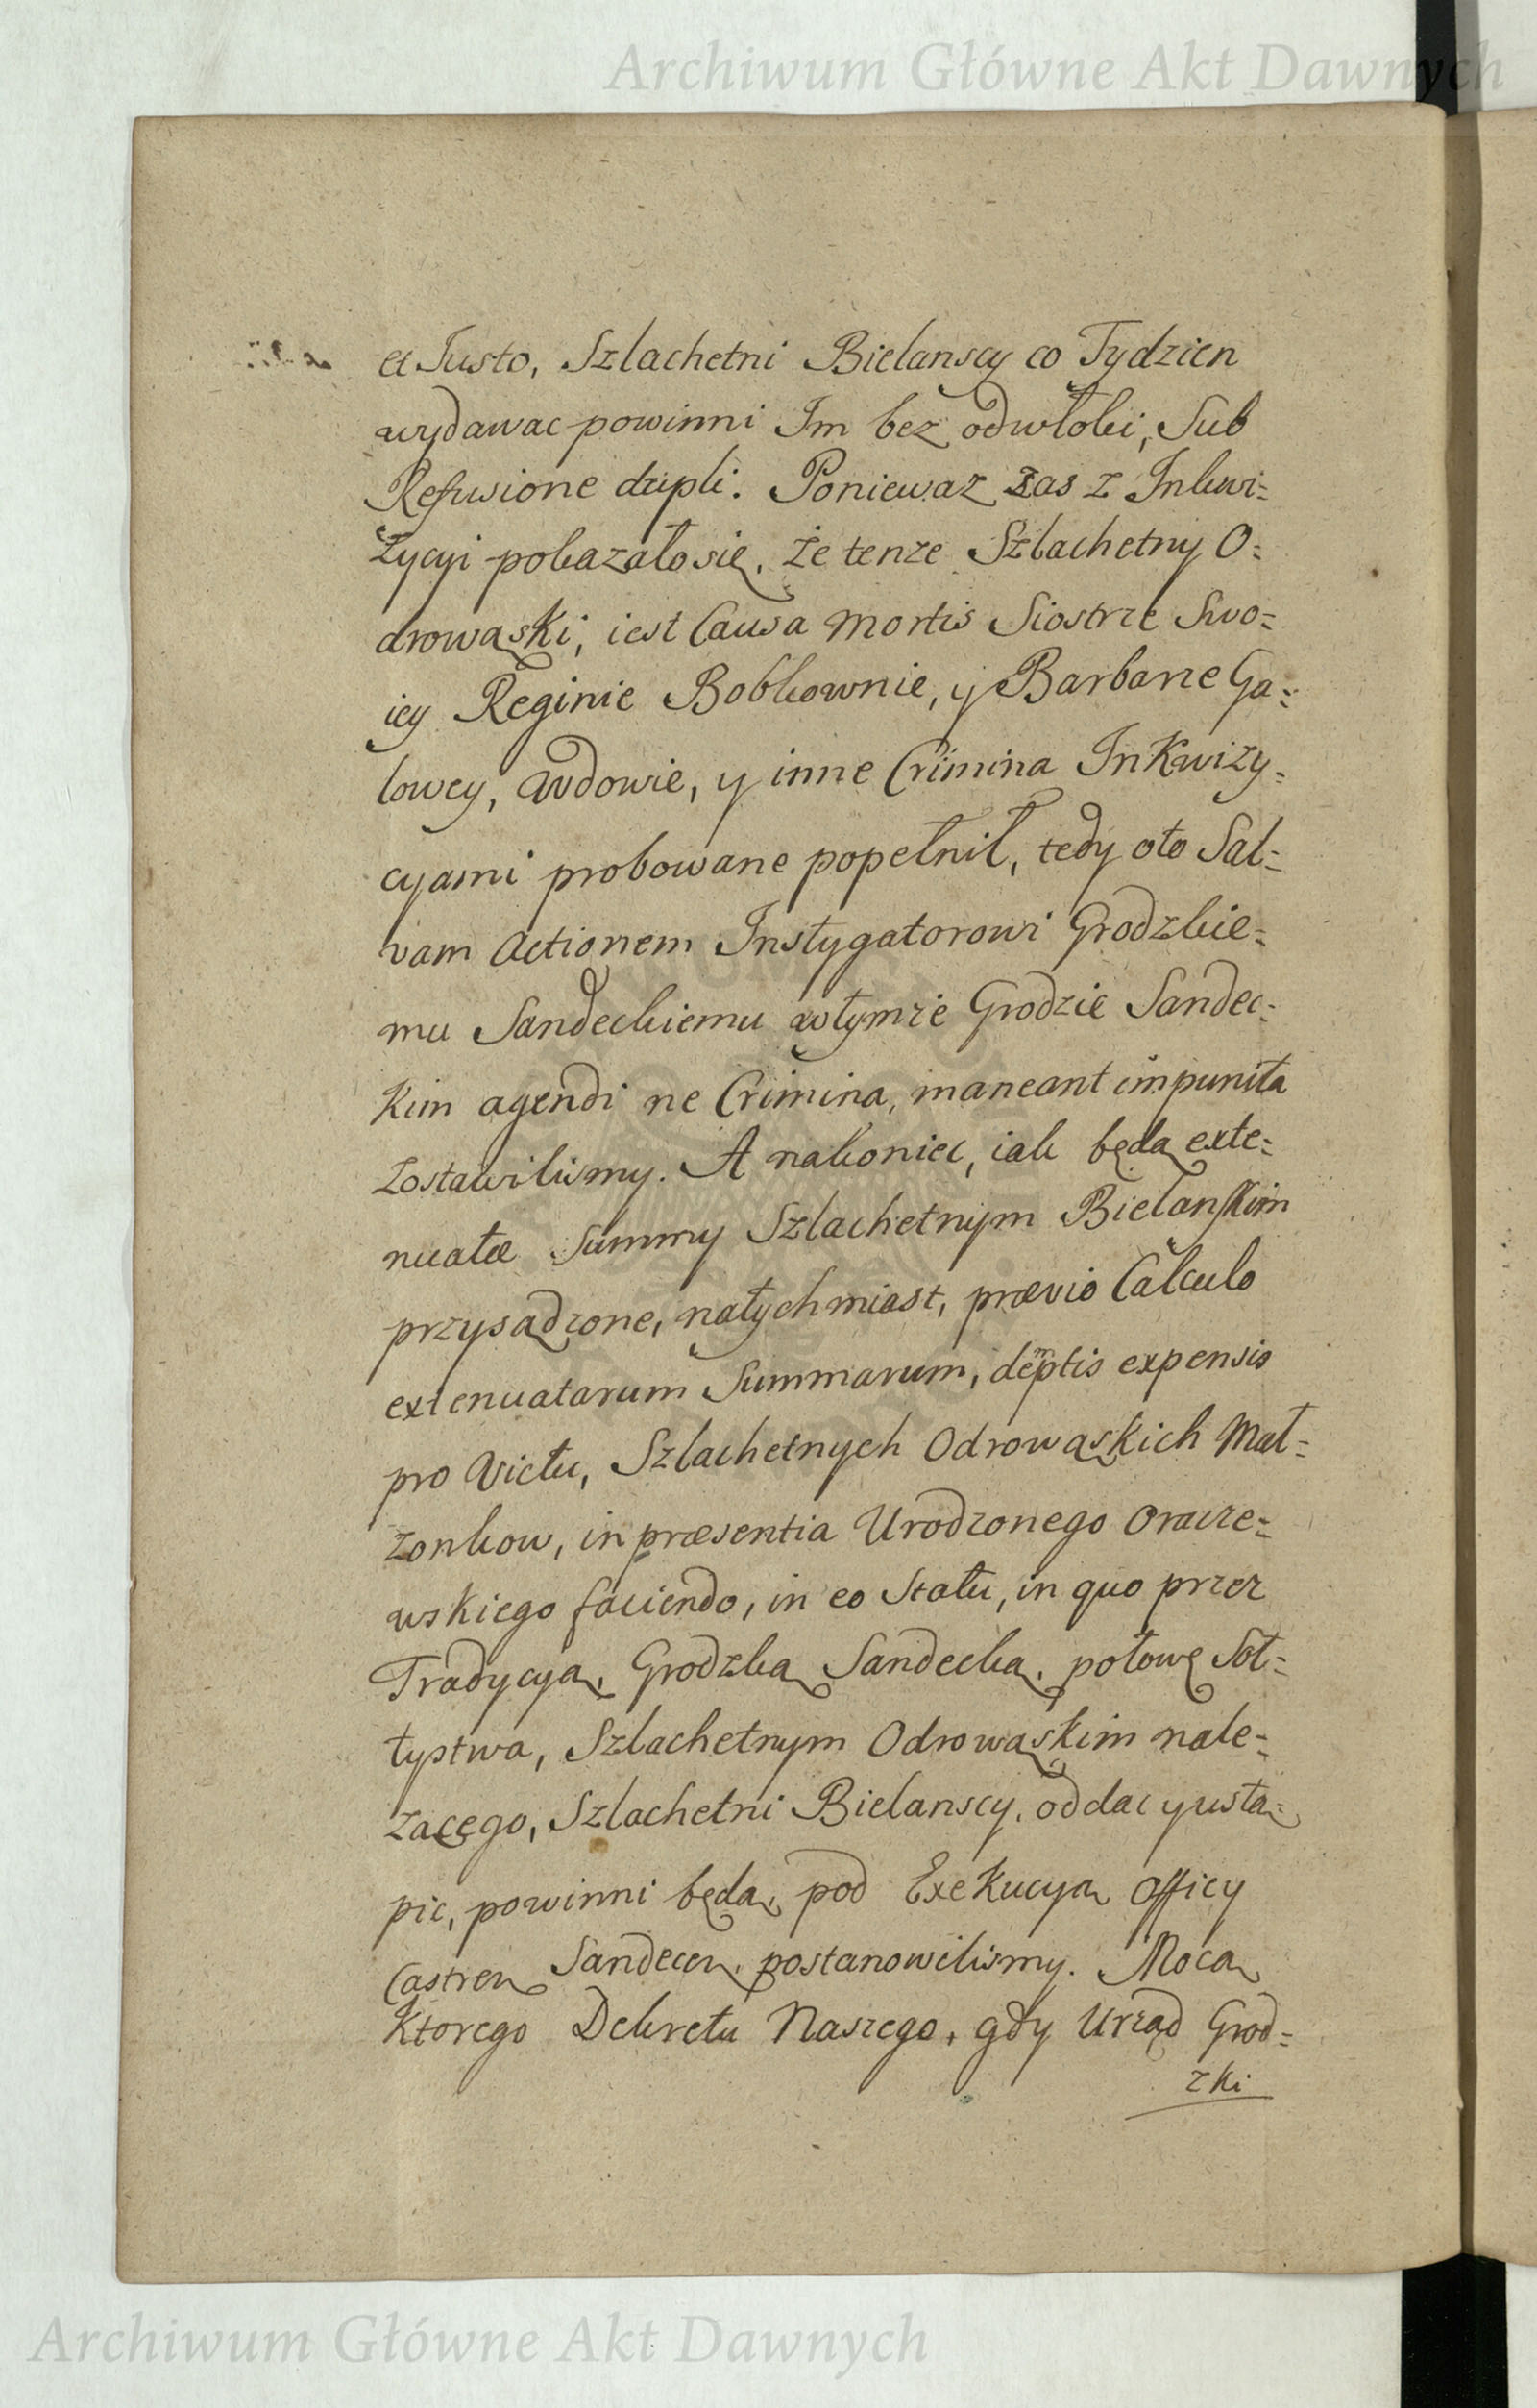 Archiwum Główne Akt Dawnych
et Justo, Szlachetni Bielanscy co Tydzien
wydawac powinni Im bez odwłoki, Sub
Refusione dupli. Poniewaz zas z Inkwi=
zycyi pokazało się, że tenze Szlachetny O=
drowąski, iest Causa Mortis Siostrze Swo=
iey Reginie Bobkownie, y Barbarze Ga=
lowey, Wdowie, y inne Crimina Inkwizy=
cyami probowane popełnił, tedy oto Sal=
vam Actionem Instygatorowi Grodzkie=
mu Sandeckiemu wtymze Grodzie Sandec=
kim agendi ne Crimina, maneant impunita
zostawilismy. A nakoniec, iak będą exte=
nuatæ Summy Szlachetnym Bielanskim
przysądzone, natychmiast, prævio Calculo
extenuatarum Summarum, demptis expensis
pro Victu, Szlachetnych Odrowąskich Mał=
zonkow, in præsentia Urodzonego Oracze=
wskiego faciendo, in eo Statu, in quo przez
Tradycyą, Grodzką Sandecką, połowę Soł=
tystwa, Szlachetnym Odrowąskim nale=
zącego, Szlachetni Bielanscy, oddac y ustą=
pic, powinni będą, pod Exekucyą Officy
Castren Sandecen, postanowilismy. Mocą
Ktorego Dekretu Naszego, gdy Urząd Grod=
zki
Archiwum Główne Akt Dawnych